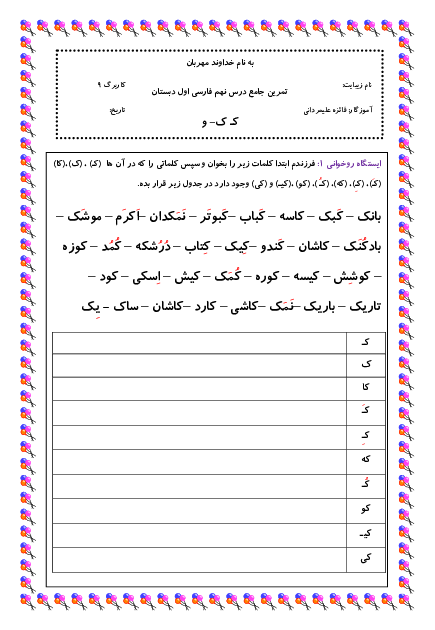 به نام خداوند مهربان
نام زیبایت: کاربرگ ۹
تمرین جامع درس نهم فارسی اول دبستان
آموزگار: فائزه علیمردانی تاریخ:
کـ ک- و
ایستگاه روخوانی ۱: فرزندم ابتدا کلمات زیر را بخوان و سپس کلماتی را که در آن ها (کـ) ، (ک)،(کا)
(کَـ)، (کِـ)، (که)، (کُـ)، (کو) ،(کیـ) و (کی) وجود دارد در جدول زیر قرار بده.
بانک – کَبک – کاسه – کَباب –کَبوتَر – نَمَکدان –اَکرَم – موشَک –
بادکُنَک – کاشان – کَندو –کِیک – کِتاب – دُرُشکه – کُمُد – کوزه
– کوشِش – کیسه – کوره – کُمَک – کیش – اِسکی – کود –
تاریک – باریک –نَمَک –کاشی – کارد –کاشان – ساک – یِک
کـ
ک
کا
کَـ
کِـ
که
کُـ
کو
کیـ
کی